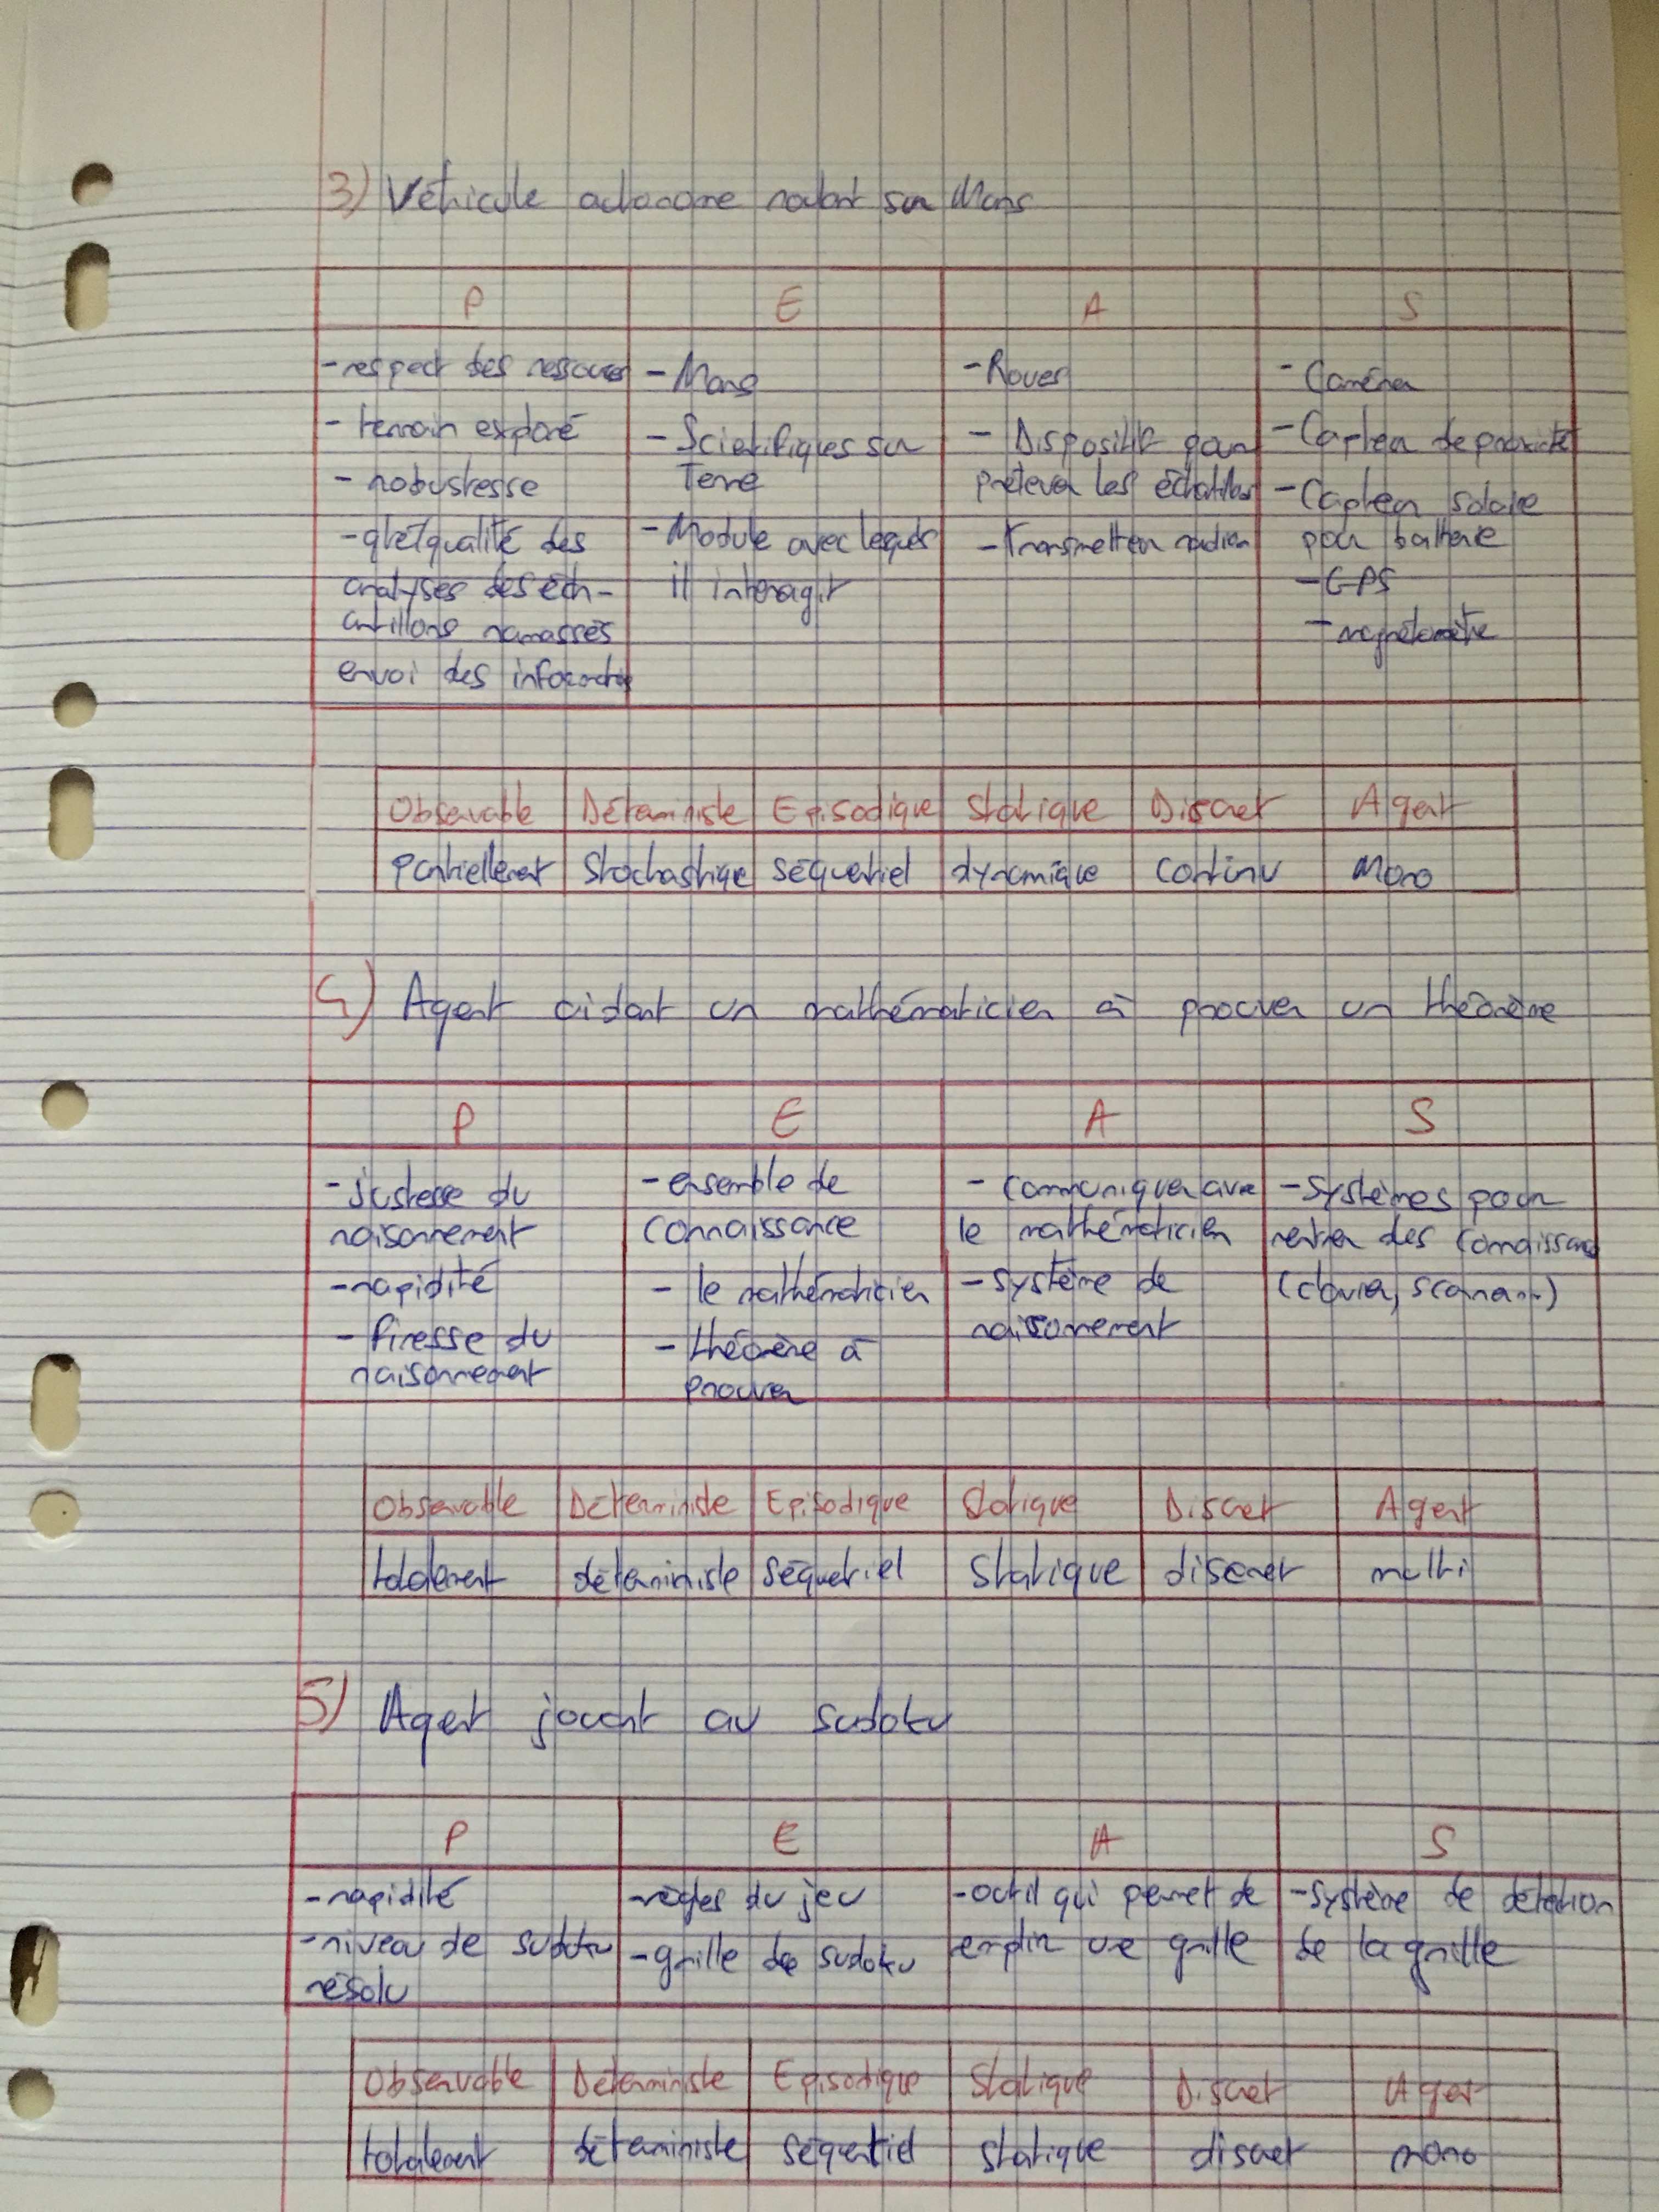 3) Véhicule autonome roulant sur Mars
P E A S
- respect des ressources
- terrain exploré
- robustesse
- qté/qualité des
analyses des éch-
antillons ramassés
envoi des informations
- Mars
- Scientifiques sur
Terre
- Module avec lequel
il interagit
- Roues
- Dispositif pour
prélever les échantillons
- Transmetteur radio
- Caméra
- Capteur de proximité
- Capteur solaire
pour batterie
- GPS
- magnétomètre
Observable Déterministe Episodique Statique Discret Agent
partiellement Stochastique séquentiel dynamique continu Mono
4) Agent aidant un mathématicien à prouver un théorème
P E A S
- justesse du
raisonnement
- rapidité
- finesse du
raisonnement
- ensemble de
connaissance
- le mathématicien
- théorème à
prouver
- communiquer avec
le mathématicien
- système de
raisonnement
- Systèmes pour
rentrer des connaissances
(clavier, scanner...)
Observable Déterministe Episodique Statique Discret Agent
totalement déterministe séquentiel Statique discret multi
5) Agent jouant au sudoku
P E A S
- rapidité
- niveau de sudoku
résolu
- règles du jeu
- grille de sudoku
- outil qui permet de
remplir une grille
- système de détection
de la grille
Observable Déterministe Episodique Statique Discret Agent
totalement déterministe séquentiel statique discret mono